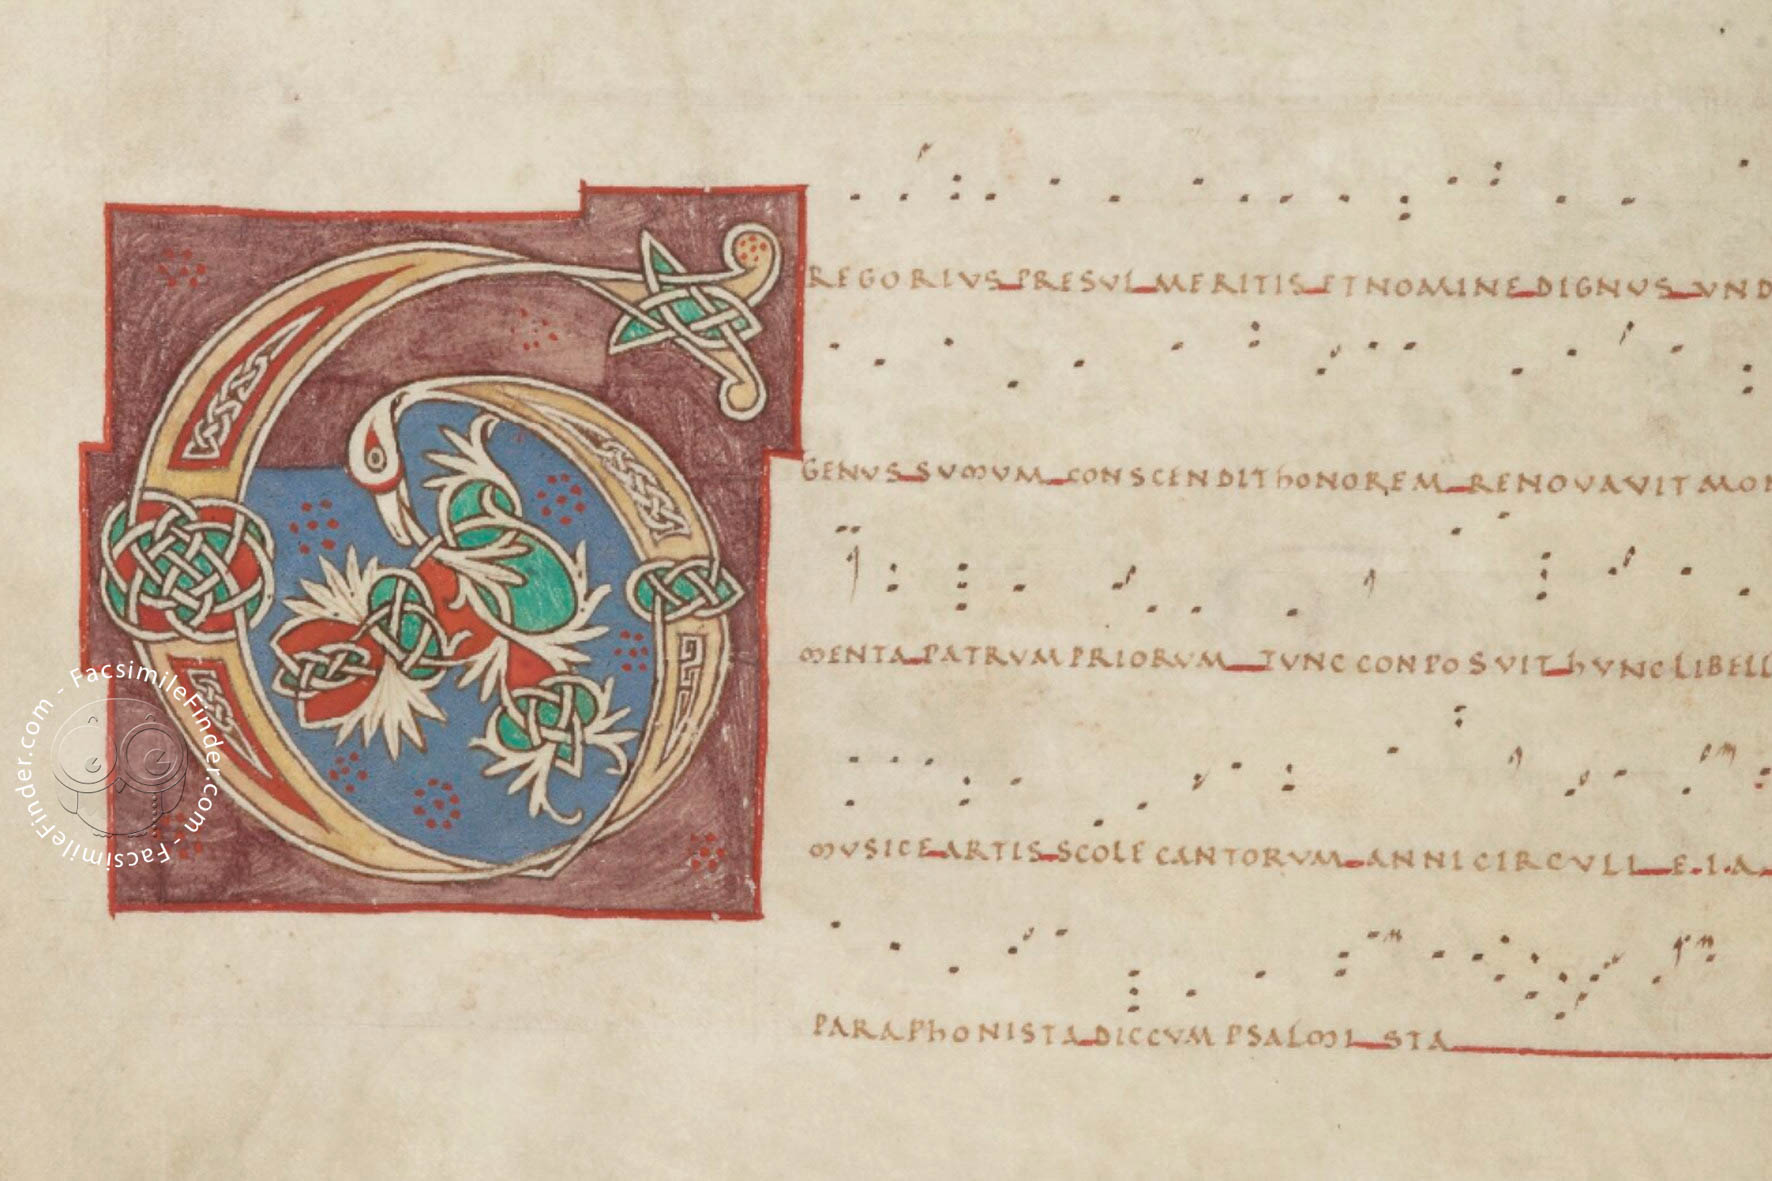 GREGORIUS PRESUL MERITIS ET NOMINE DIGNUS UND
GENUS SUMUM CONSCENDIT hONOREM RENOVAVIT MON
MENTA PATRUM PRIORUM TUNC CONPOSUIT hUNC LIBELL
MUSICE ARTIS SCOLE CANTORUM ANNI CIRCULI E.I.A.
PARAPhONISTA DIC CUM PSALMISTA
FacsimileFinder.com - FacsimileFinder.com -